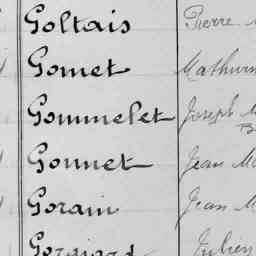 Goltais Pierre
Gomet Mathurin
Gommelet Joseph M
Gonnet Jean M
Gorain Jean M
Julien